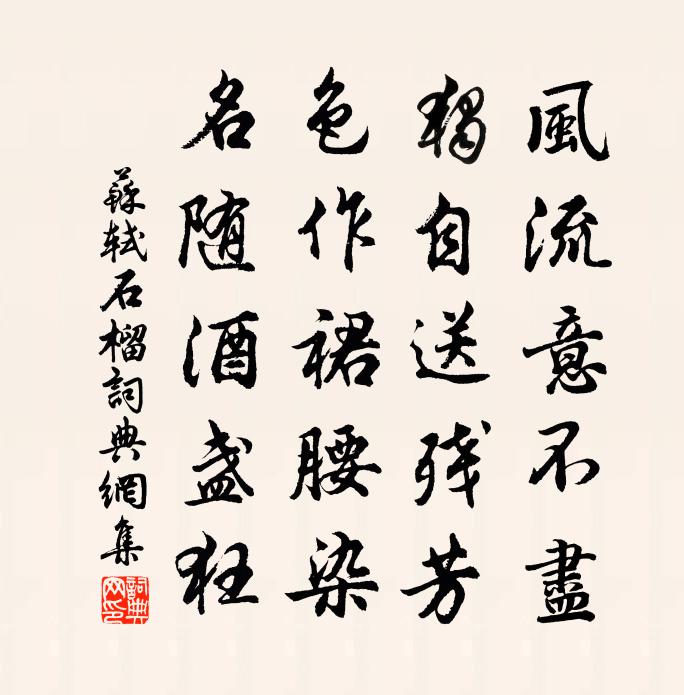 風流意不盡
獨自送残芳
色作裙腰染
名随酒盏狂
蘇軾石榴詞典網集
詞典網印